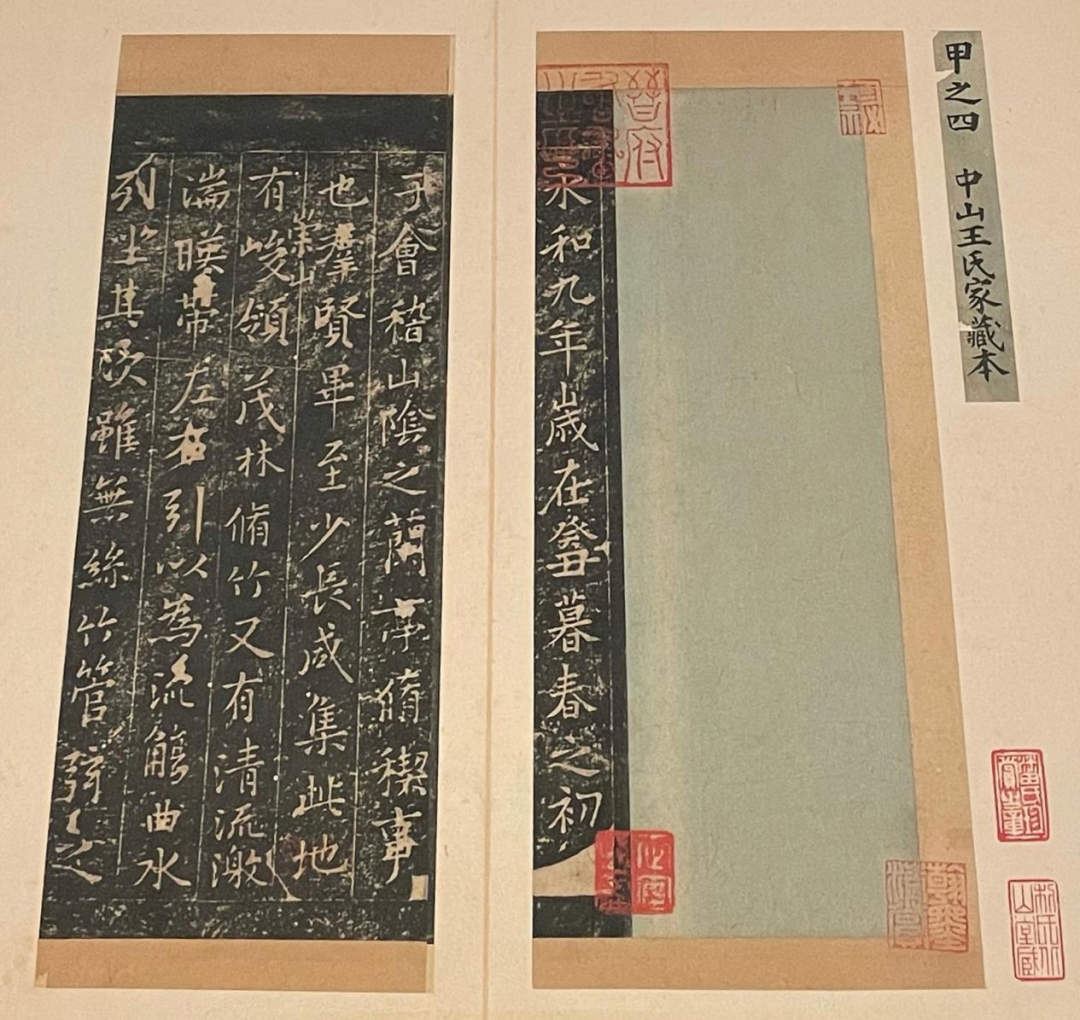 甲之四 中山王氏家藏本
晉府書畫之印
永和九年歲在癸丑暮春之初
于會稽山陰之蘭亭脩禊事
也羣賢畢至少長咸集此地
崇山
有峻領茂林脩竹又有清流激
湍暎帶左右引以為流觴曲水
列坐其次雖無絲竹管弦之